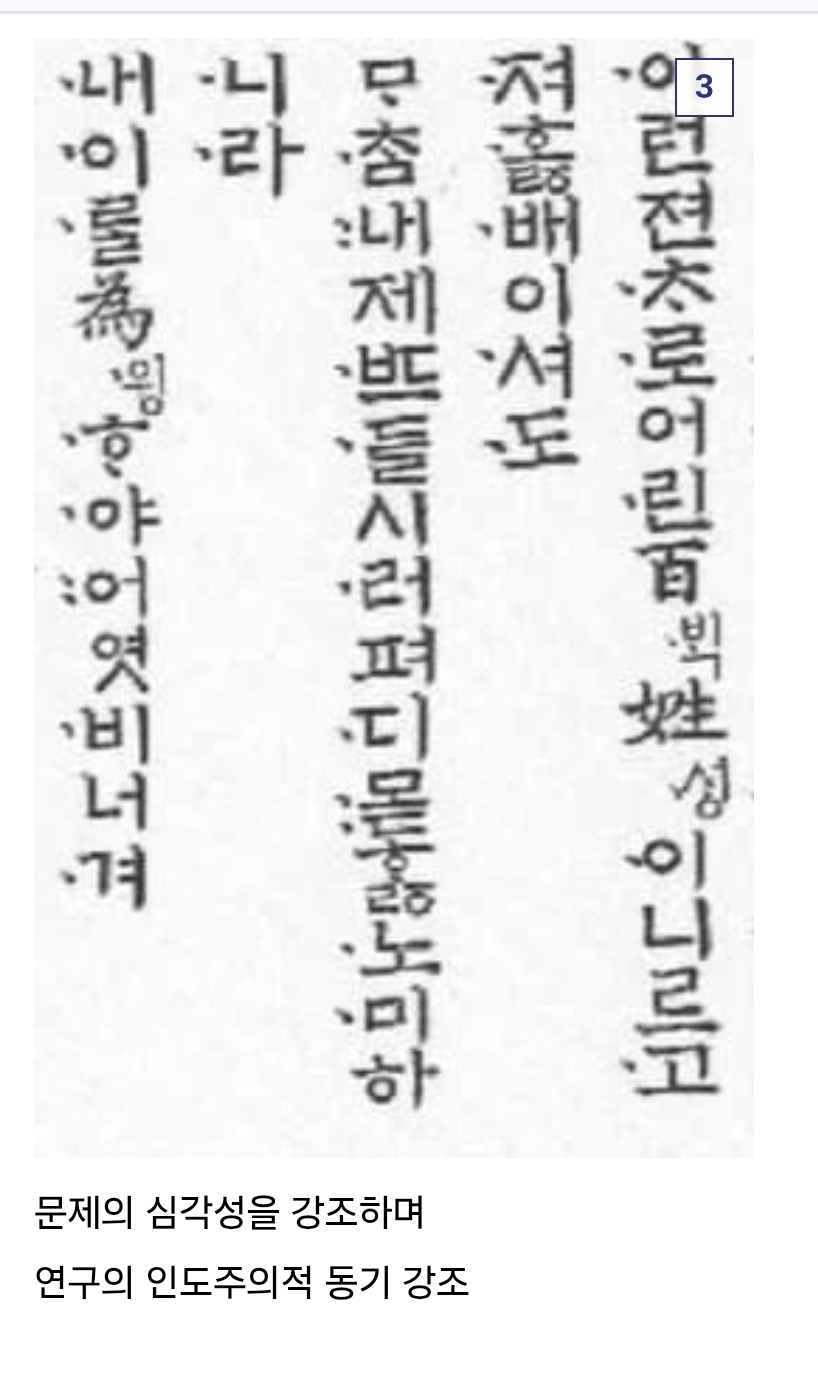 3
·이런젼·ᄎᆞ·로어·린百·ᄇᆡᆨ姓·셔ᇰ·이니르·고
·져·호ᇙ·배이·셔·도
ᄆᆞ·ᄎᆞᆷ:내제·ᄠᅳ·들시·러펴·디:몯호ᇙ·노·미하
·니·라
·내·이·ᄅᆞᆯ為·윙·ᄒᆞ·야:어엿·비너·겨
문제의 심각성을 강조하며
연구의 인도주의적 동기 강조